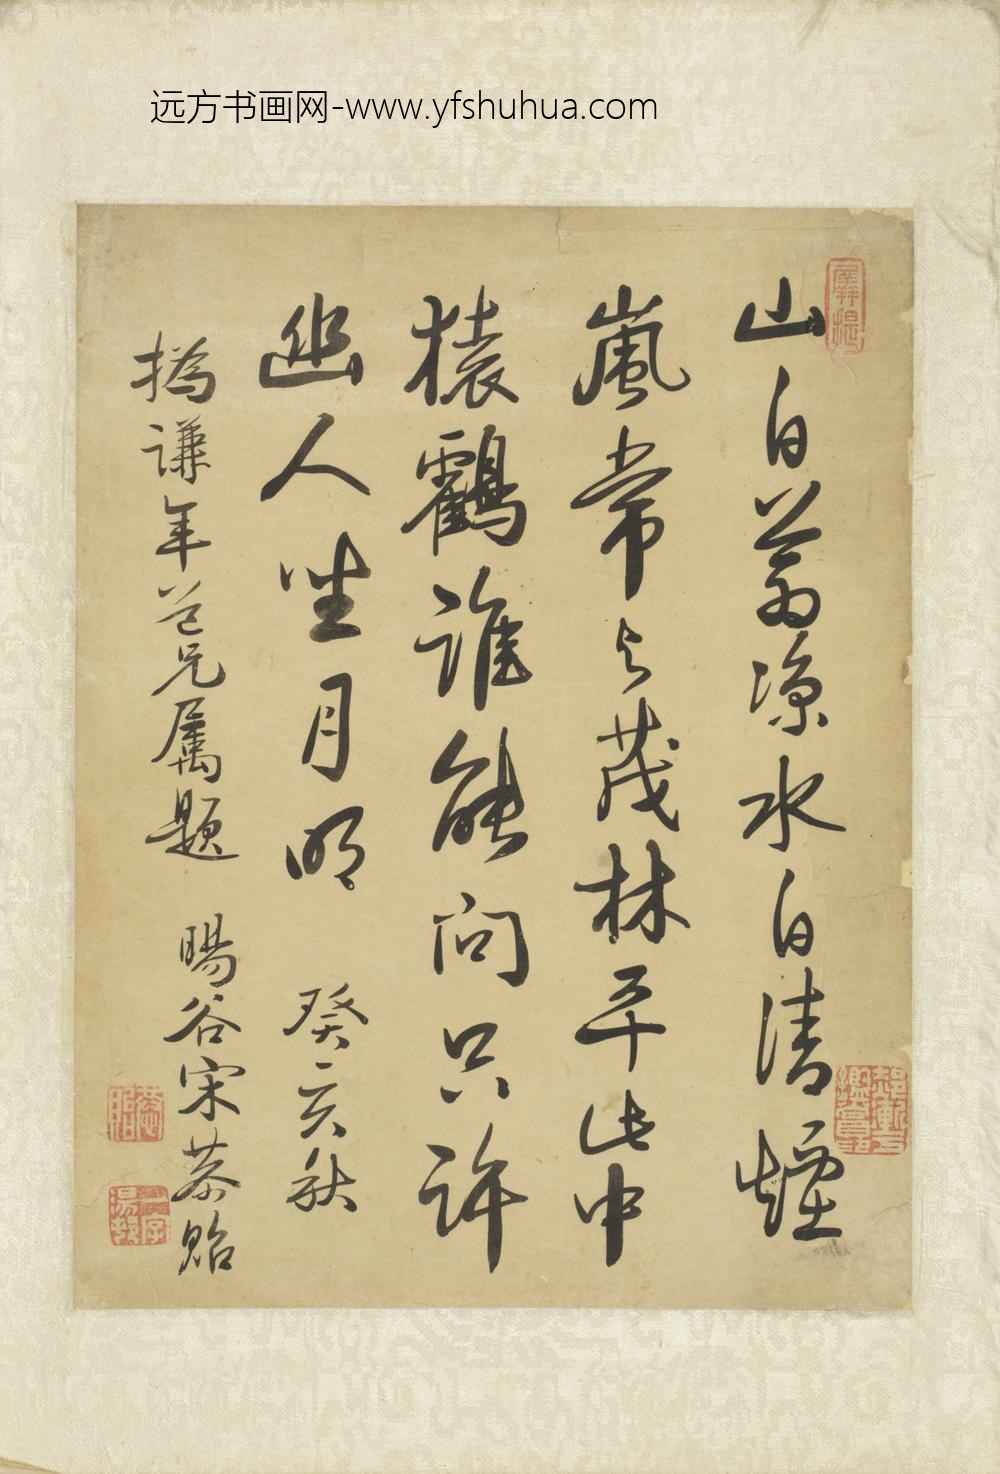 远方书画网-www.yfshuhua.com
山自蒼凉水自清煙
嵐常与茂林平此中
猿鶴誰能問只許
幽人坐月明 癸亥秋
撝謙年道兄屬題 暘谷宋恭貽